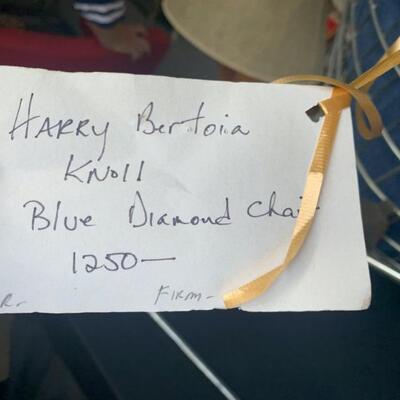 HARRY Bertoia
KNOll
Blue Diamond Chair
1250—
R- FIRM-